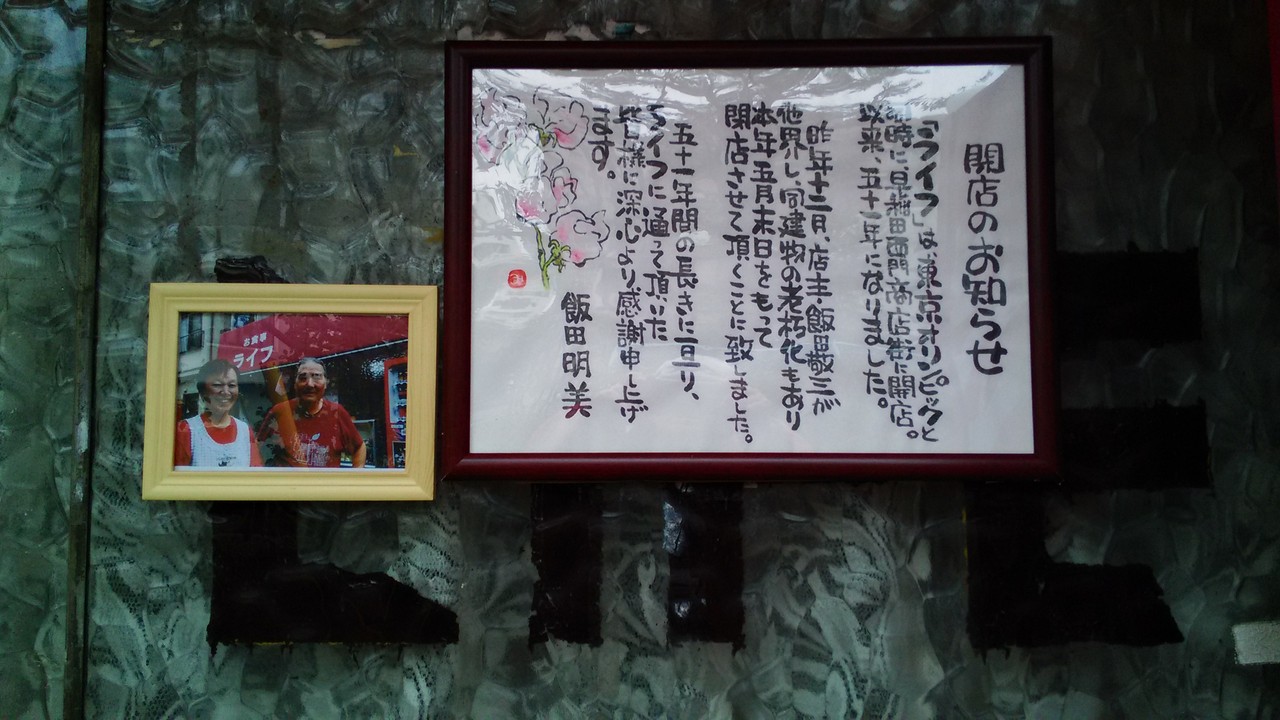 閉店のお知らせ
「ライフ」は、東京オリンピックと
同時に、早稲田西門商店街に開店。
以来、五十一年になりました。
昨年十二月、店主・飯田敬三が
他界し、同建物の老朽化もあり
本年五月末日をもって
閉店させて頂くことに致しました。
五十一年間の長きに亘り、
ライフに通って頂いた
皆様に深心より感謝申し上げ
ます。
飯田明美
お食事
ライフ